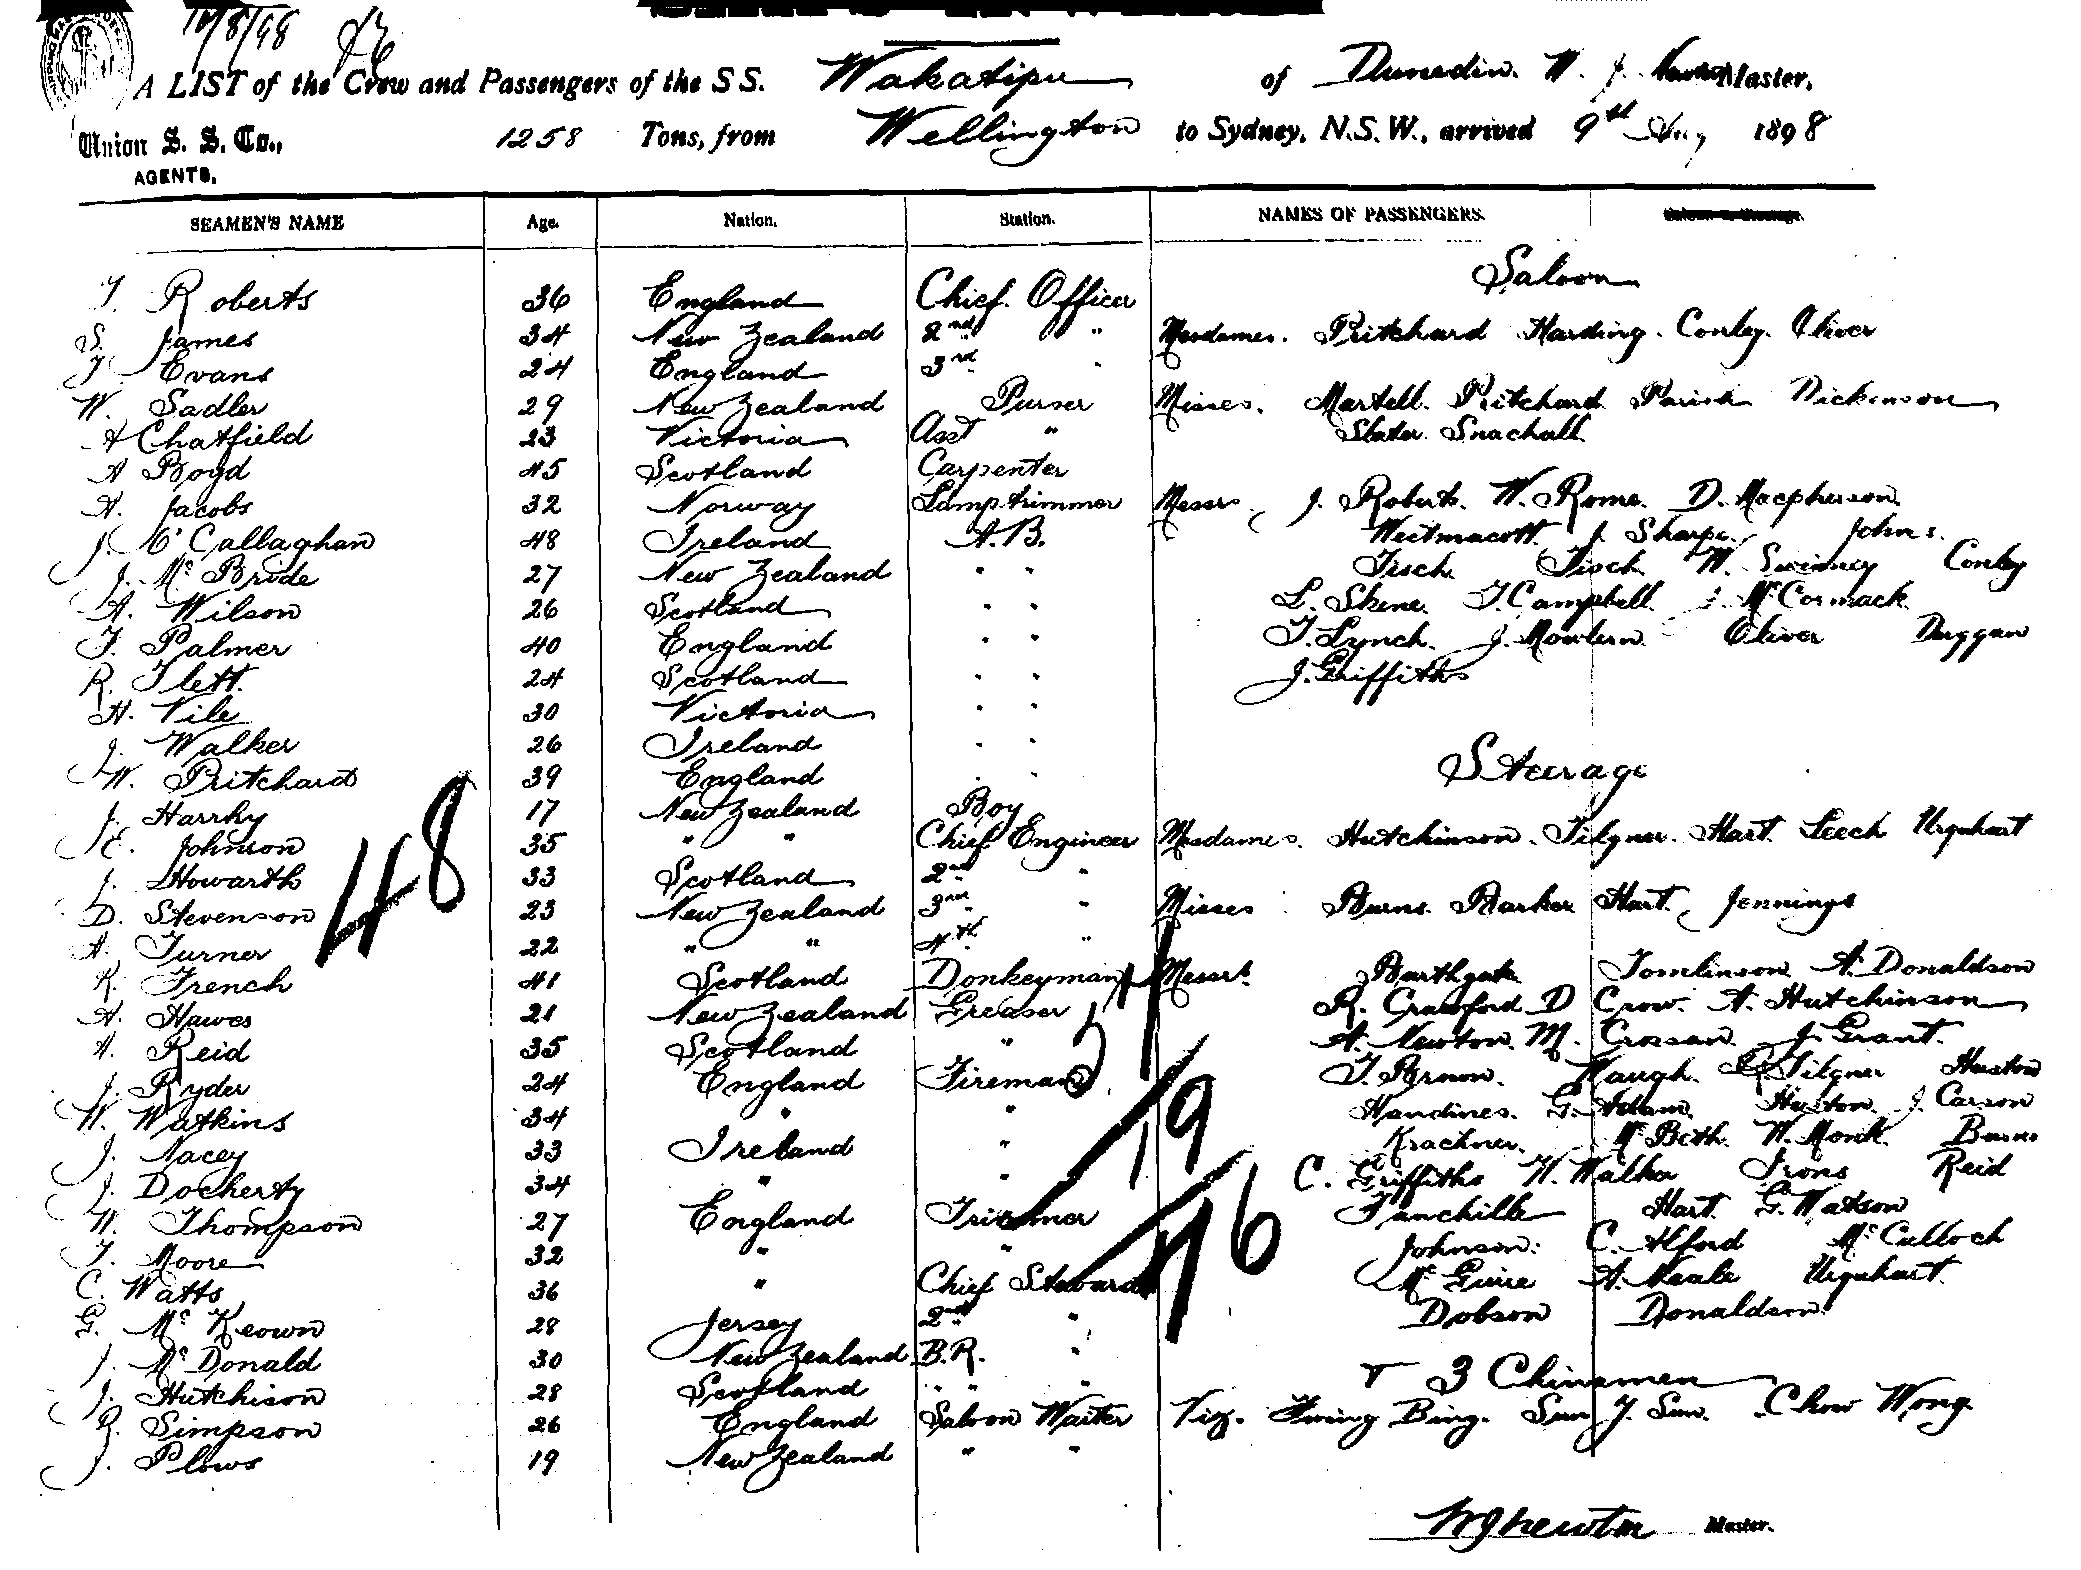 10/8/98
A LIST of the Crew and Passengers of the S S. Wakatipu of Dunedin. W. J. Master,
Union S. S. Co., 1258 Tons, from Wellington to Sydney, N.S.W., arrived 9th Aug 1898
AGENTS,
SEAMEN'S NAME Age. Nation. Station. NAMES OF PASSENGERS.
Saloon
T. Roberts 36 England Chief Officer
S. James 34 New Zealand 2nd " Mesdames. Pritchard Harding. Conby. Oliver
T. Evans 24 England 3rd "
W. Sadler 29 New Zealand Purser Misses. Martell. Pritchard Parish Dickinson
A Chatfield 23 Victoria Asst " Slater. Snachall
A Boyd 45 Scotland Carpenter
A. Jacobs 32 Norway Lamptrimmer Messrs J. Roberts. W. Rome. D. Macpherson
J. O'Callaghan 48 Ireland A.B. Westmacott J. Sharpe. Johns.
J. McBride 27 New Zealand " " Fisch Fisch W. Swinney Conby
A. Wilson 26 Scotland " " L. Skene. T. Campbell J. McCormack
T. Palmer 40 England " " T. Lynch. J. Mowlem Oliver Duggan
R. Flett. 24 Scotland " " J. Griffiths
H. Vile 30 Victoria " "
J. Walker 26 Ireland " "
W. Pritchard 39 England " " Steerage
J. Harrky 17 New Zealand Boy
E. Johnson 35 " " Chief Engineer Mesdames. Hutchinson. Tilgner. Hart. Leech Urquhart
J. Howarth 33 Scotland 2nd "
D. Stevenson 23 New Zealand 3rd " Misses Burns. Barker Hart. Jennings
A. Turner 22 " " 4th "
R. French 41 Scotland Donkeyman Messrs Barthgate Tomlinson A. Donaldson
A. Hawes 21 New Zealand Greaser R. Crawford D Crow. A. Hutchinson
A. Reid 35 Scotland " A. Newton. M. Crossan J. Grant.
J. Ryder 24 England Fireman T. Brown. Waugh. Tilgner Huston
W. Watkins 34 " " Handines. G. Adam. Huston J. Carson
J. Nacey 33 Ireland " Krachner. McBeth. W. Monk. Burns
J. Docherty 34 " " C. Griffiths W. Walker Irons Reid
W. Thompson 27 England Trimmer Tanchille Hart G. Watson
T. Moore 32 " " Johnson. C. Alford McCulloch
C. Watts 36 " Chief Steward McGuire A. Neale Urquhart.
G. McKeown 28 Jersey 2nd " Dobson Donaldson.
J. McDonald 30 New Zealand B.R. "
J. Hutchison 28 Scotland " " + 3 Chinamen
R. Simpson 26 England Saloon Waiter Viz. Kwing Bing. Sun Y. Sun. Chow Wong
J. Plows 19 New Zealand " "
48
19
76
W J Newton Master.